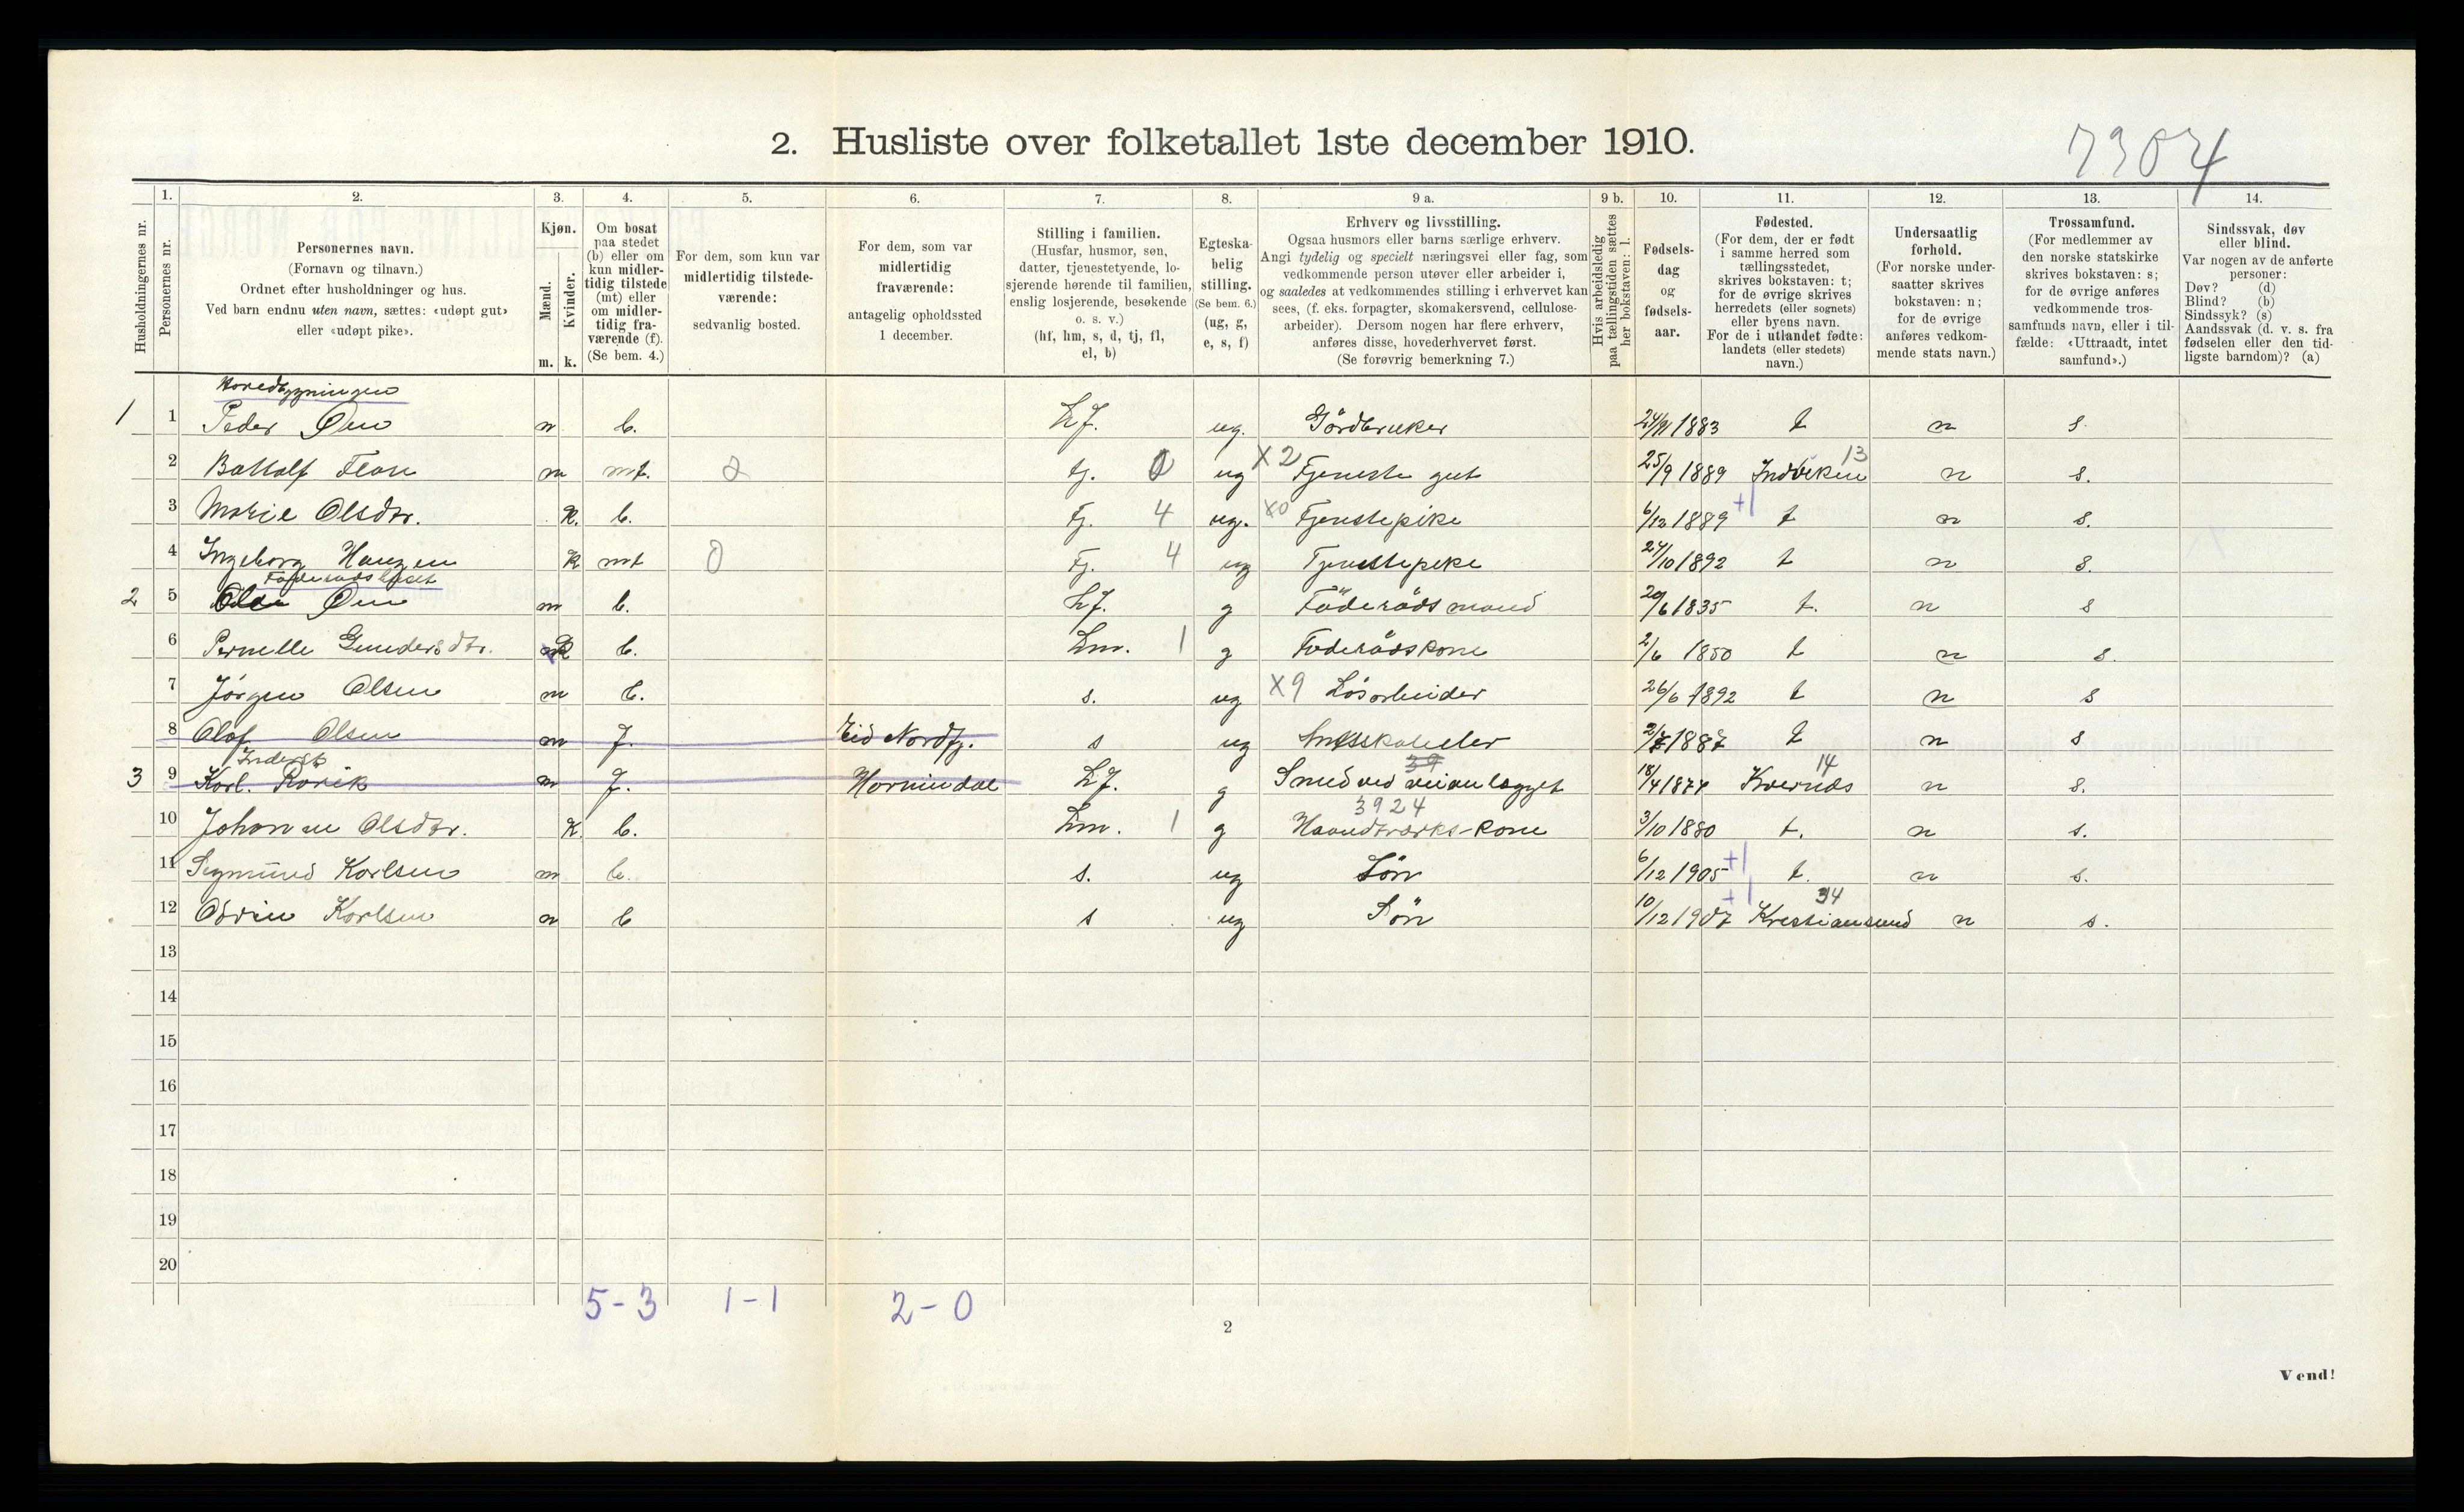 2. Husliste over folketallet 1ste december 1910.
7304
1. 2. 3. 4. 5. 6. 7. 8. 9 a. 9 b. 10. 11. 12. 13. 14.
Husholdningernes nr.
Personernes nr.
Personernes navn.
(Fornavn og tilnavn.)
Ordnet efter husholdninger og hus.
Ved barn endnu uten navn, sættes: «udøpt gut»
eller «udøpt pike».
Kjøn.
Mænd.
Kvinder.
m. k.
Om bosat
paa stedet
(b) eller om
kun midler-
tidig tilstede
(mt) eller
om midler-
tidig fra-
værende (f).
(Se bem. 4.)
For dem, som kun var
midlertidig tilstede-
værende:
sedvanlig bosted.
For dem, som var
midlertidig
fraværende:
antagelig opholdssted
1 december.
Stilling i familien.
(Husfar, husmor, søn,
datter, tjenestetyende, lo-
sjerende hørende til familien,
enslig losjerende, besøkende
o. s. v.)
(hf, hm, s, d, tj, fl,
el, b)
Egteska-
belig
stilling.
(Se bem. 6.)
(ug, g,
e, s, f)
Erhverv og livsstilling.
Ogsaa husmors eller barns særlige erhverv.
Angi tydelig og specielt næringsvei eller fag, som
vedkommende person utøver eller arbeider i,
og saaledes at vedkommendes stilling i erhvervet kan
sees, (f. eks. forpagter, skomakersvend, cellulose-
arbeider). Dersom nogen har flere erhverv,
anføres disse, hovederhvervet først.
(Se forøvrig bemerkning 7.)
Hvis arbeidsledig
paa tællingstiden sættes
her bokstaven: l.
Fødsels-
dag
og
fødsels-
aar.
Fødested.
(For dem, der er født
i samme herred som
tællingsstedet,
skrives bokstaven: t;
for de øvrige skrives
herredets (eller sognets)
eller byens navn.
For de i utlandet fødte:
landets (eller stedets)
navn.)
Undersaatlig
forhold.
(For norske under-
saatter skrives
bokstaven: n;
for de øvrige
anføres vedkom-
mende stats navn.)
Trossamfund.
(For medlemmer av
den norske statskirke
skrives bokstaven: s;
for de øvrige anføres
vedkommende tros-
samfunds navn, eller i til-
fælde: «Uttraadt, intet
samfund».)
Sindssvak, døv
eller blind.
Var nogen av de anførte
personer:
Døv? (d)
Blind? (b)
Sindssyk? (s)
Aandssvak (d. v. s. fra
fødselen eller den tid-
ligste barndom)? (a)
Hovedbygningen
1 1 Peder Øen m b. hf. ug. Gårdbruker 24/11 1883 t n s.
2 Flore m mt. 2 tj. ug X2 Tjeneste gut 25/9 1889 Indviken 13 n s.
3 Marie Olsdtr. k. b. tj. 4 ug. X0 Tjenestepike 6/12 1889 +1 t n s.
4 Ingeborg Hansen k mt 0 tj. 4 ug Tjenestepike 24/10 1892 t n s.
Føderådshuset
2 5 Ole Øen m b. hf. g Føderådsmand 20/6 1835 t. n s
6 Pernelle Gundersdtr. k b. hm. 1 g Føderådskone 2/6 1850 t n s.
7 Jørgen Olsen m b. s. ug X9 Løsarbeider 26/6 1892 t n s
8 Olaf Olsen m f. Eid Nordfj. s ug 1887 t n s
Inderst
3 9 Karl Rovik m f. Hornindal hf. g Smed ved veianlægget 39 18/4 1874 Kvernes 14 n s.
10 Johanne Olsdtr. k. b. hm. 1 g Haandverks-kone 3924 3/10 1880 t. n s.
11 Sigmund Karlsen m b. s. ug Søn 6/12 1905 +1 t. n s.
12 Odvin Karlsen m b s ug Søn 10/12 1907 +1 Kristiansund 34 n s.
13
14
15
16
17
18
19
20
5-3 1-1 2-0
2
Vend!